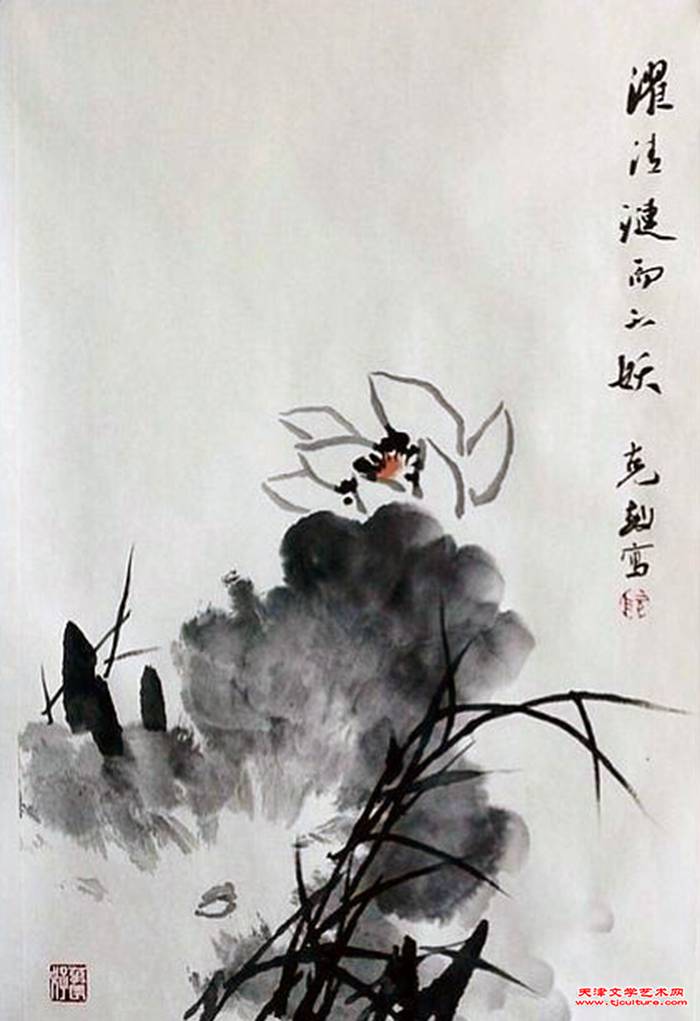 濯清漣而不妖
克 寫
天津文学艺术网
www.tjculture.com